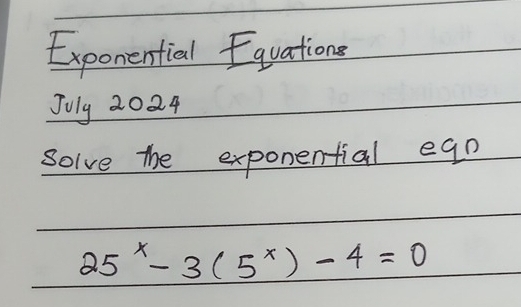 Exponential Equations
July 2024
Solve the exponential eqn
25^x - 3(5^x) - 4 = 0